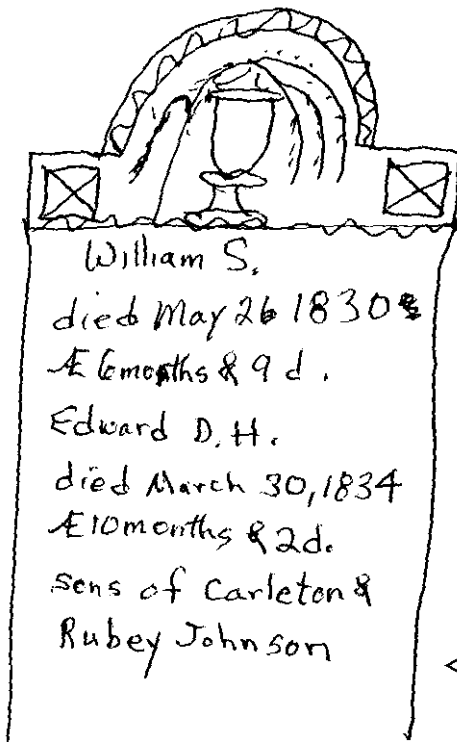 William S.
died May 26 1830
Æ 6 months & 9 d.
Edward D. H.
died March 30, 1834
Æ 10 months & 2d.
sons of Carleton &
Rubey Johnson